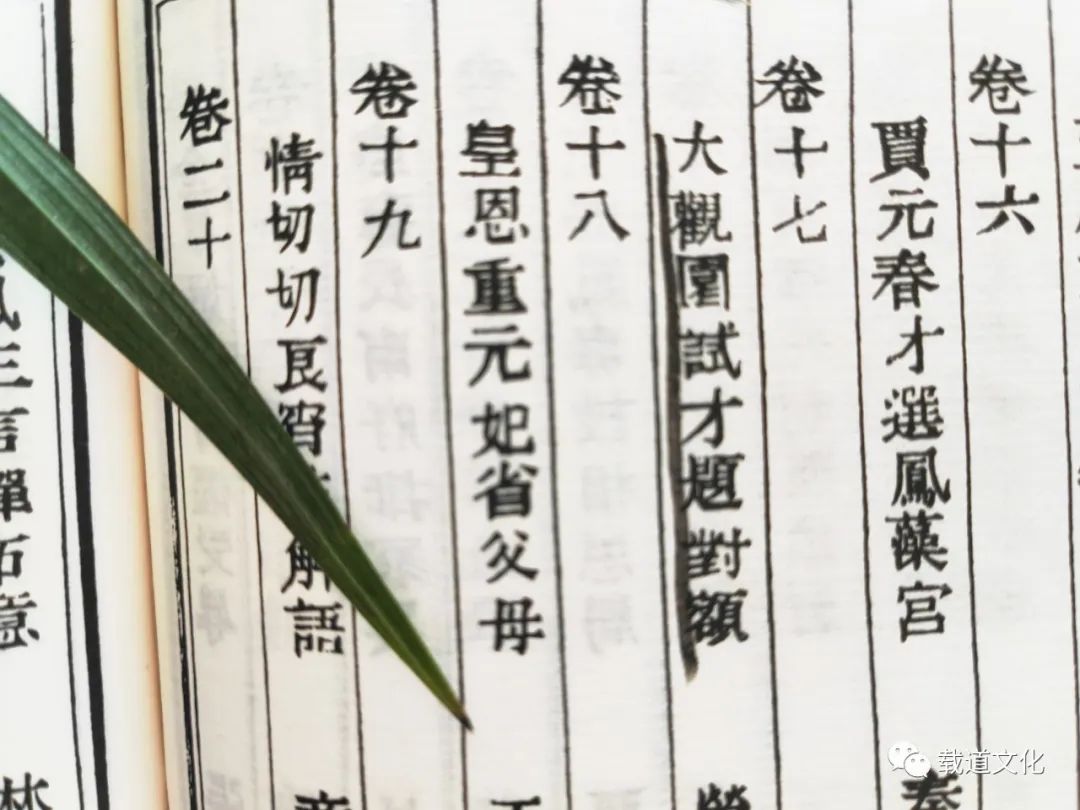 卷十六
賈元春才選鳳藻宮
卷十七
大觀園試才題對額
卷十八
皇恩重元妃省父母
卷十九
情切切良宵 解語
卷二十
三言彈 意
载道文化